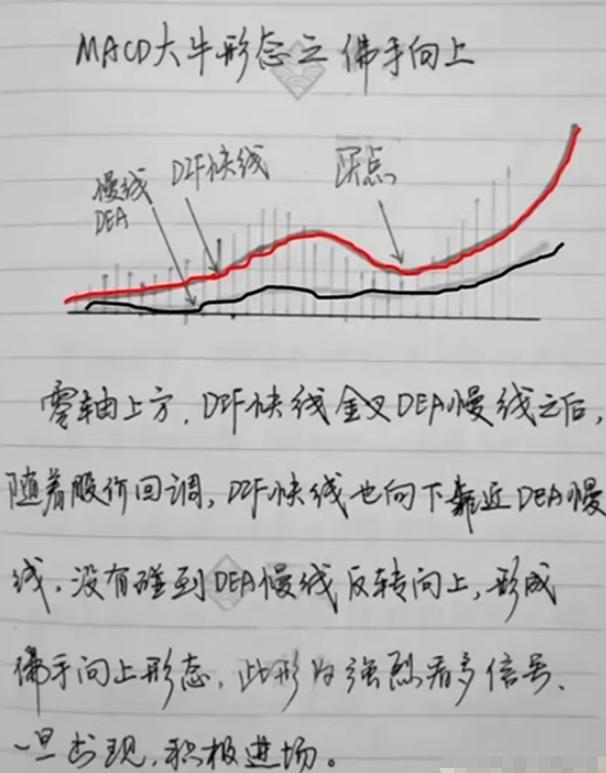 MACD大牛形态之佛手向上
慢线
DEA
DIF快线
买点
零轴上方，DIF快线金叉DEA慢线之后，
随着股价回调，DIF快线也向下靠近DEA慢
线，没有碰到DEA慢线反转向上，形成
佛手向上形态，此形为强烈看多信号、
一旦出现，积极进场。